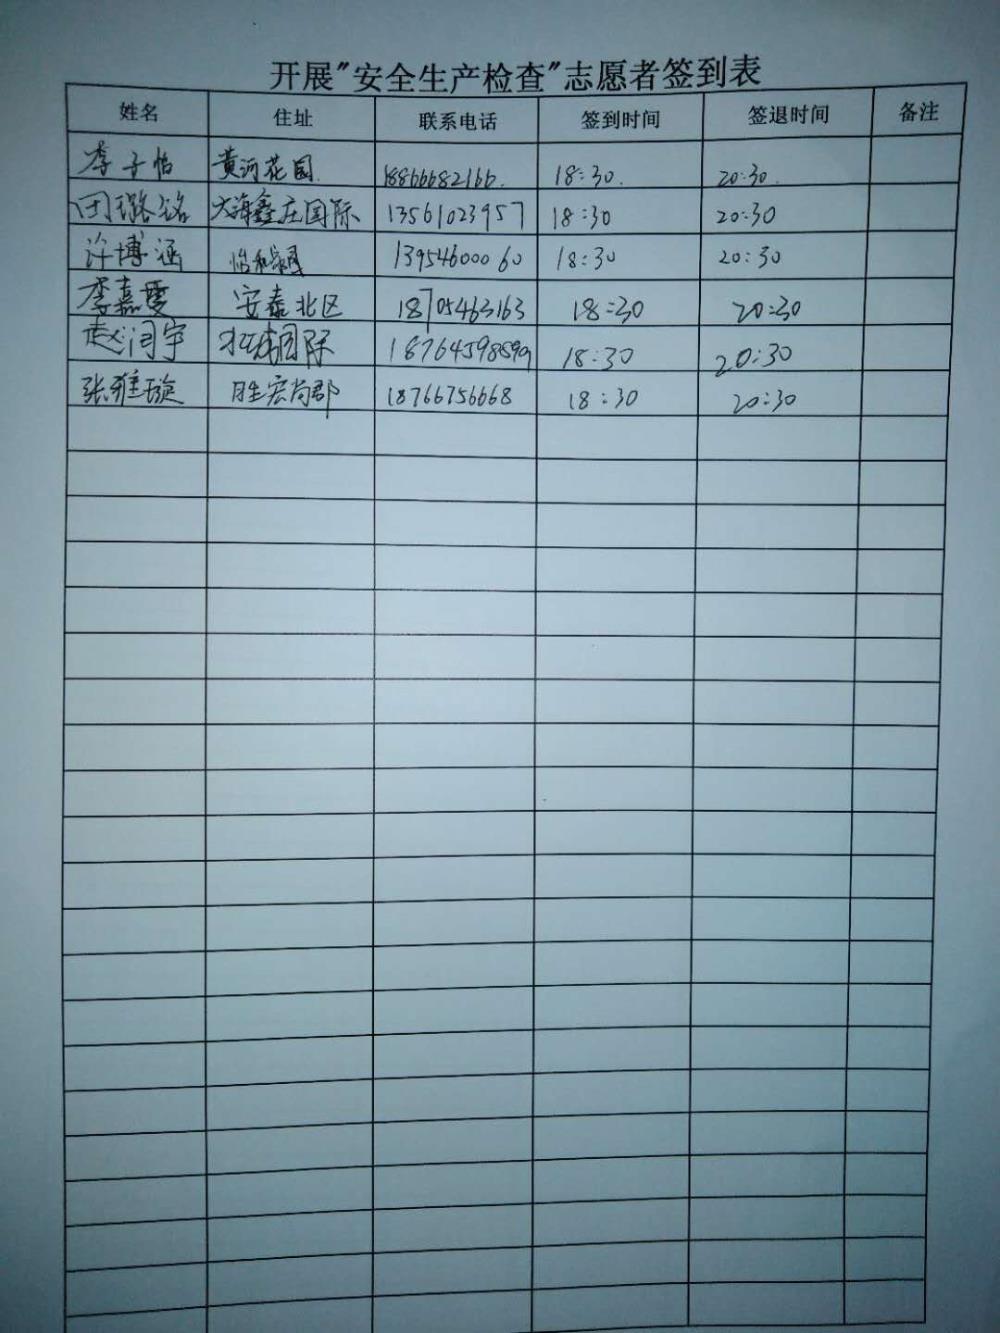 开展"安全生产检查"志愿者签到表
姓名 住址 联系电话 签到时间 签退时间 备注
李子怡 黄河花园 18866682166 18:30 20:30
田璐铭 大海鑫庄国际 13561023957 18:30 20:30
许博涵 13954600060 18:30 20:30
李嘉雯 安泰北区 18705463163 18:30 20:30
赵闰宇 国际 18:30 20:30
张雅璇 胜宏尚郡 18766756668 18:30 20:30